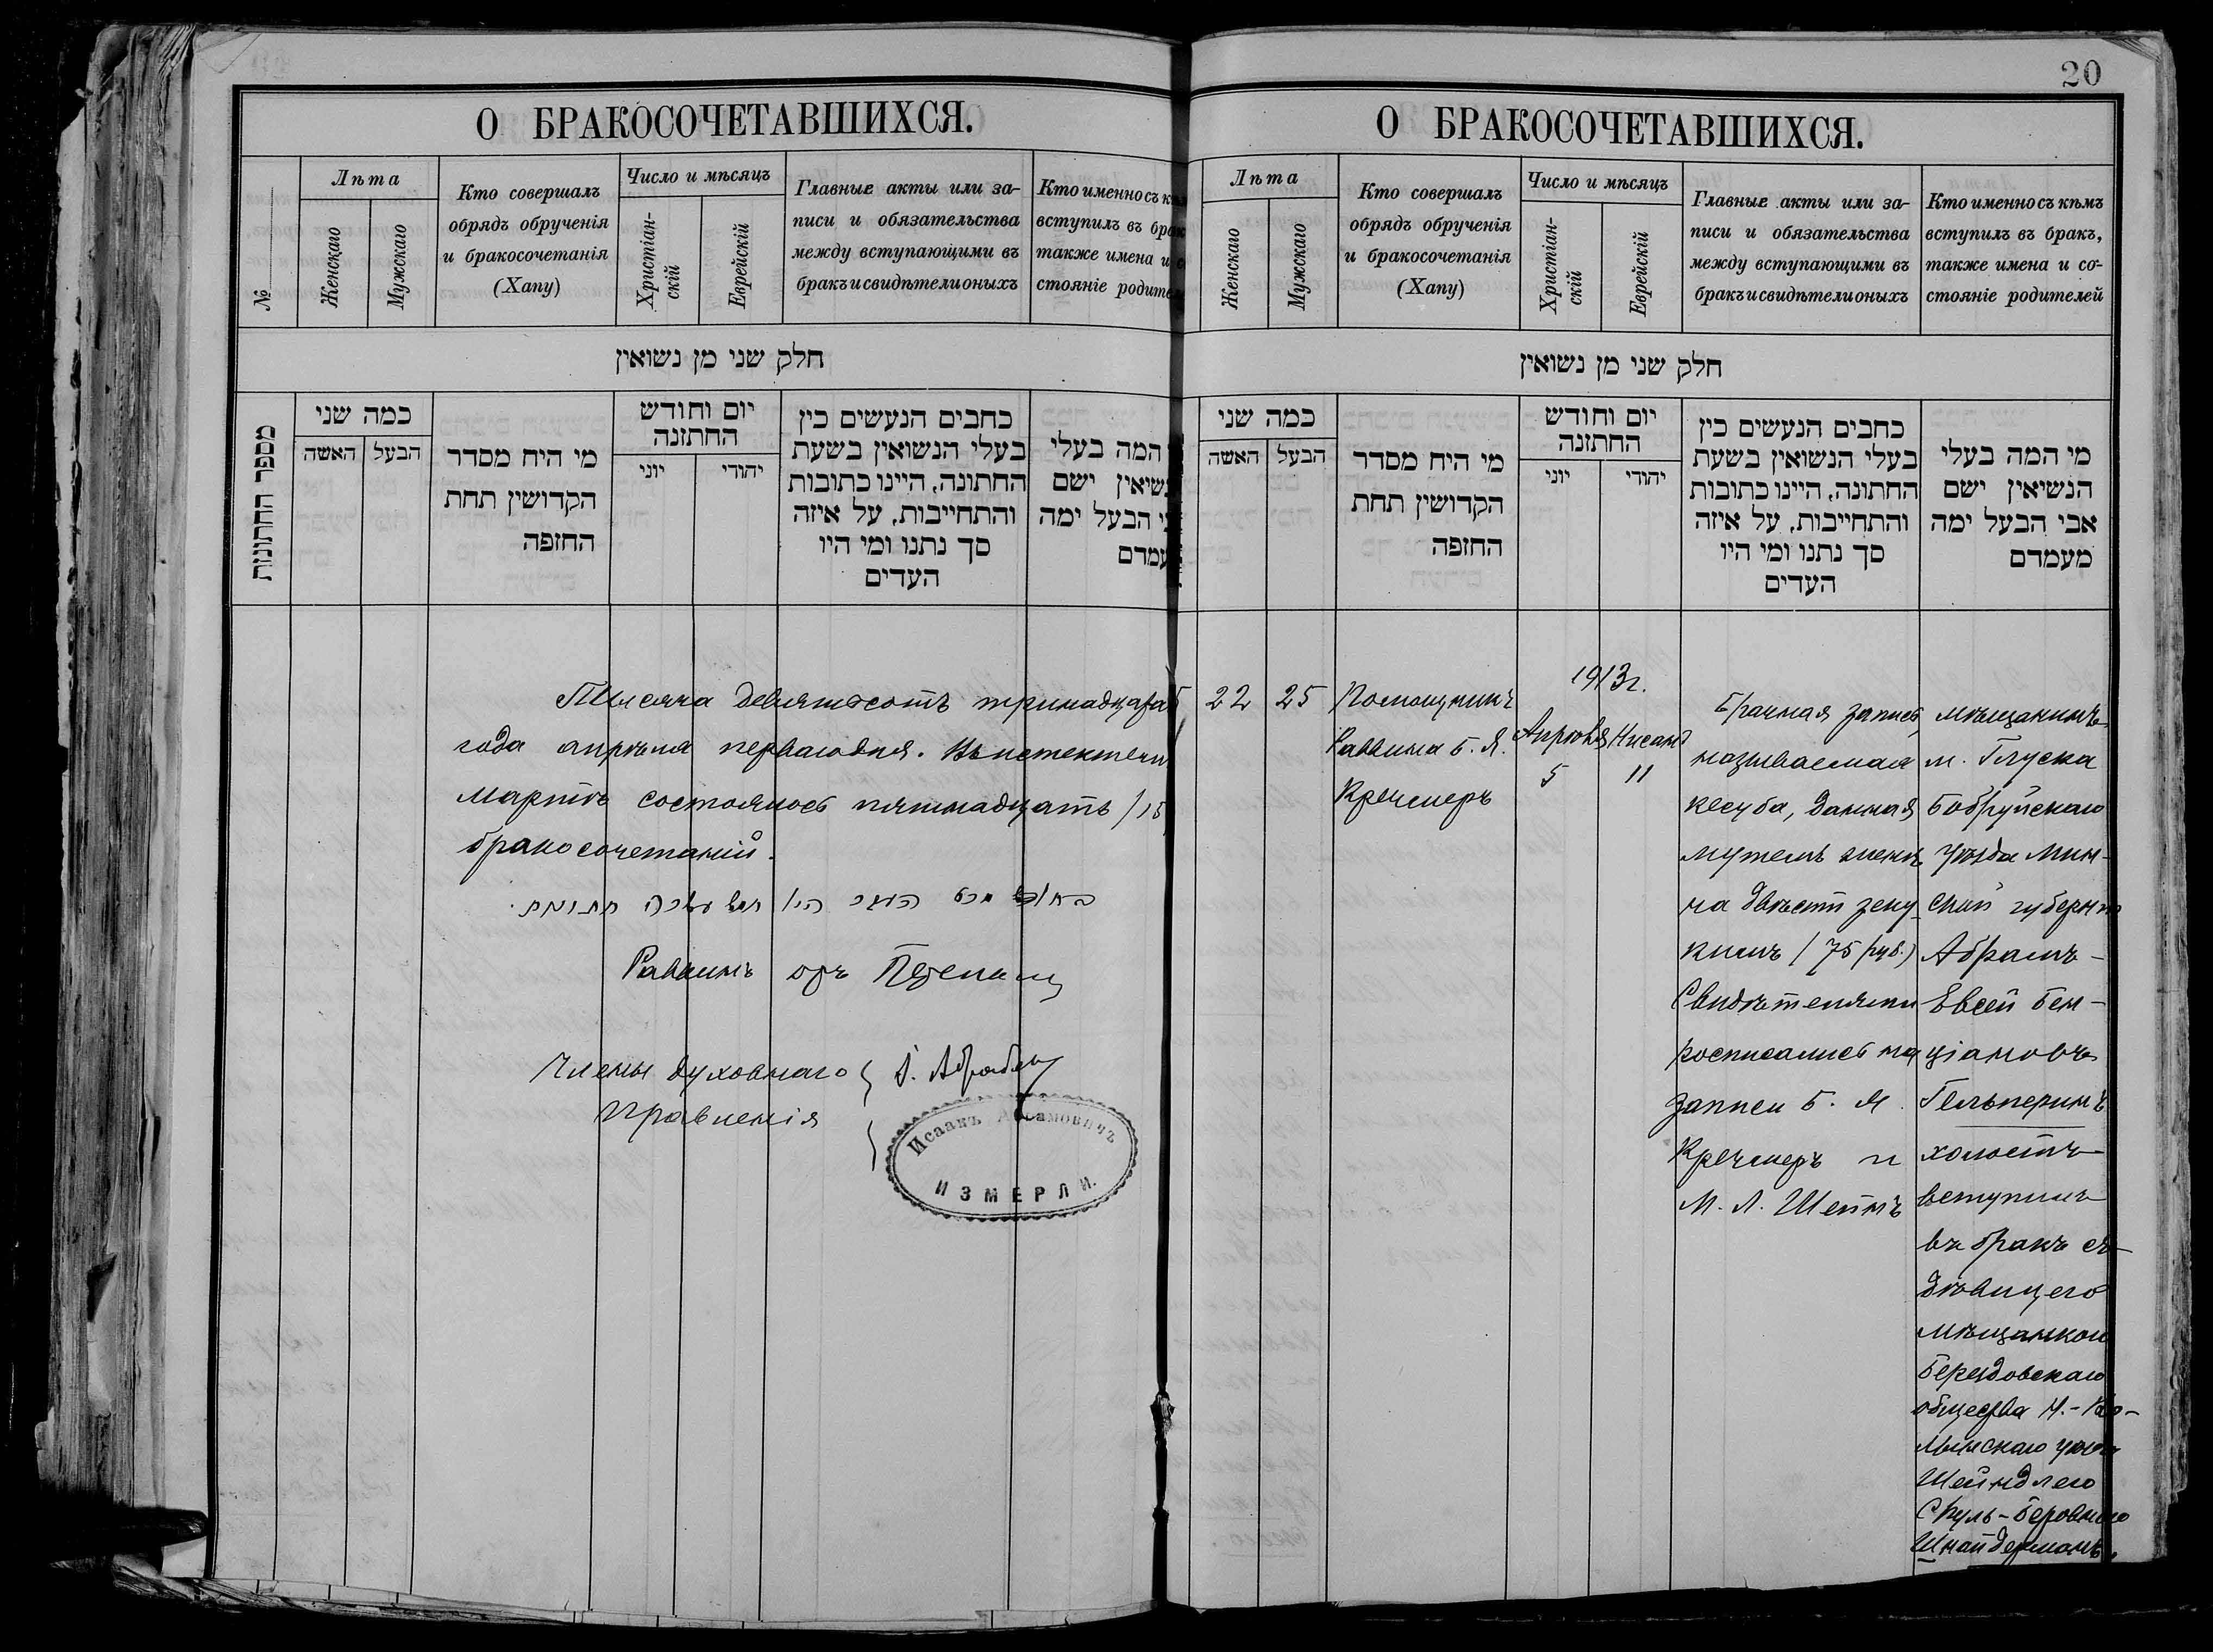 20
О БРАКОСОЧЕТАВШИХСЯ.
№
Лѣта
Женскаго
Мужскаго
Кто совершалъ
обрядъ обрученія
и бракосочетанія
(Хапу)
Число и мѣсяцъ
Христіан-
скій
Еврейскій
Главные акты или за-
писи и обязательства
между вступающими въ
бракъ и свидѣтели оныхъ
Кто именно съ
вступилъ въ
также имена и
стояніе
חלק שני מן נשואין
מספר החתונות
כמה שני
האשה
הבעל
מי היח מסדר
הקדושין תחת
החזפה
יום וחודש
החתזנה
יוני
יהודי
כחבים הנעשים כין
בעלי הנשואין בשעת
החתונה, היינו כתובות
והתחייבות, על איזה
סך נתנו ומי היו
העדים
המה בעלי
ישם
הבעל ימה
Тысяча девятьсотъ
года апрѣля перваго дня. Въ истекшемъ
Мартѣ состоялось пятнадцать /15
бракосочетаній.
Раввинъ
Члены духовнаго
Правленія
Исаакъ Абрамовичъ
ИЗМЕРЛИ.
О БРАКОСОЧЕТАВШИХСЯ.
Лѣта
Женскаго
Мужскаго
Кто совершалъ
обрядъ обрученія
и бракосочетанія
(Хапу)
Число и мѣсяцъ
Христіан-
скій
Еврейскій
Главные акты или за-
писи и обязательства
между вступающими въ
бракъ и свидѣтели оныхъ
Кто именно съ кѣмъ
вступилъ въ бракъ,
также имена и со-
стояніе родителей
חלק שני מן נשואין
כמה שני
האשה
הבעל
מי היח מסדר
הקדושין תחת
החזפה
יום וחודש
החתזנה
יוני
יהודי
כחבים הנעשים כין
בעלי הנשואין בשעת
החתונה, היינו כתובות
והתחייבות, על איזה
סך נתנו ומי היו
העדים
מי המה בעלי
הנשיאין ישם
אבי הבעל ימה
מעמדם
22
25
Помощникъ
Раввина Б. Я.
Кречмеръ
1913 г.
Апрѣля
5
Нисана
11
Брачная запись
называемая
кесуба, данная
мужемъ женѣ
на двѣсти зеку-
кимъ / 75 руб.)
Свидѣтелями
росписались на
записи Б. Я.
Кречмеръ и
М. Л. Шейнъ
мѣщанинъ
м. Глуска
Бобруйскаго
уѣзда Мин-
ской губерніи
Абрамъ-
Евсей Бен-
ціановъ
Гельперинъ
холостъ
вступилъ
въ бракъ съ
дѣвицею
мѣщанкою
Берездовскаго
общества Н.-Во-
лынскаго уѣзда
Шейндлею
Сруль-Беровною
Шнайдерманъ.